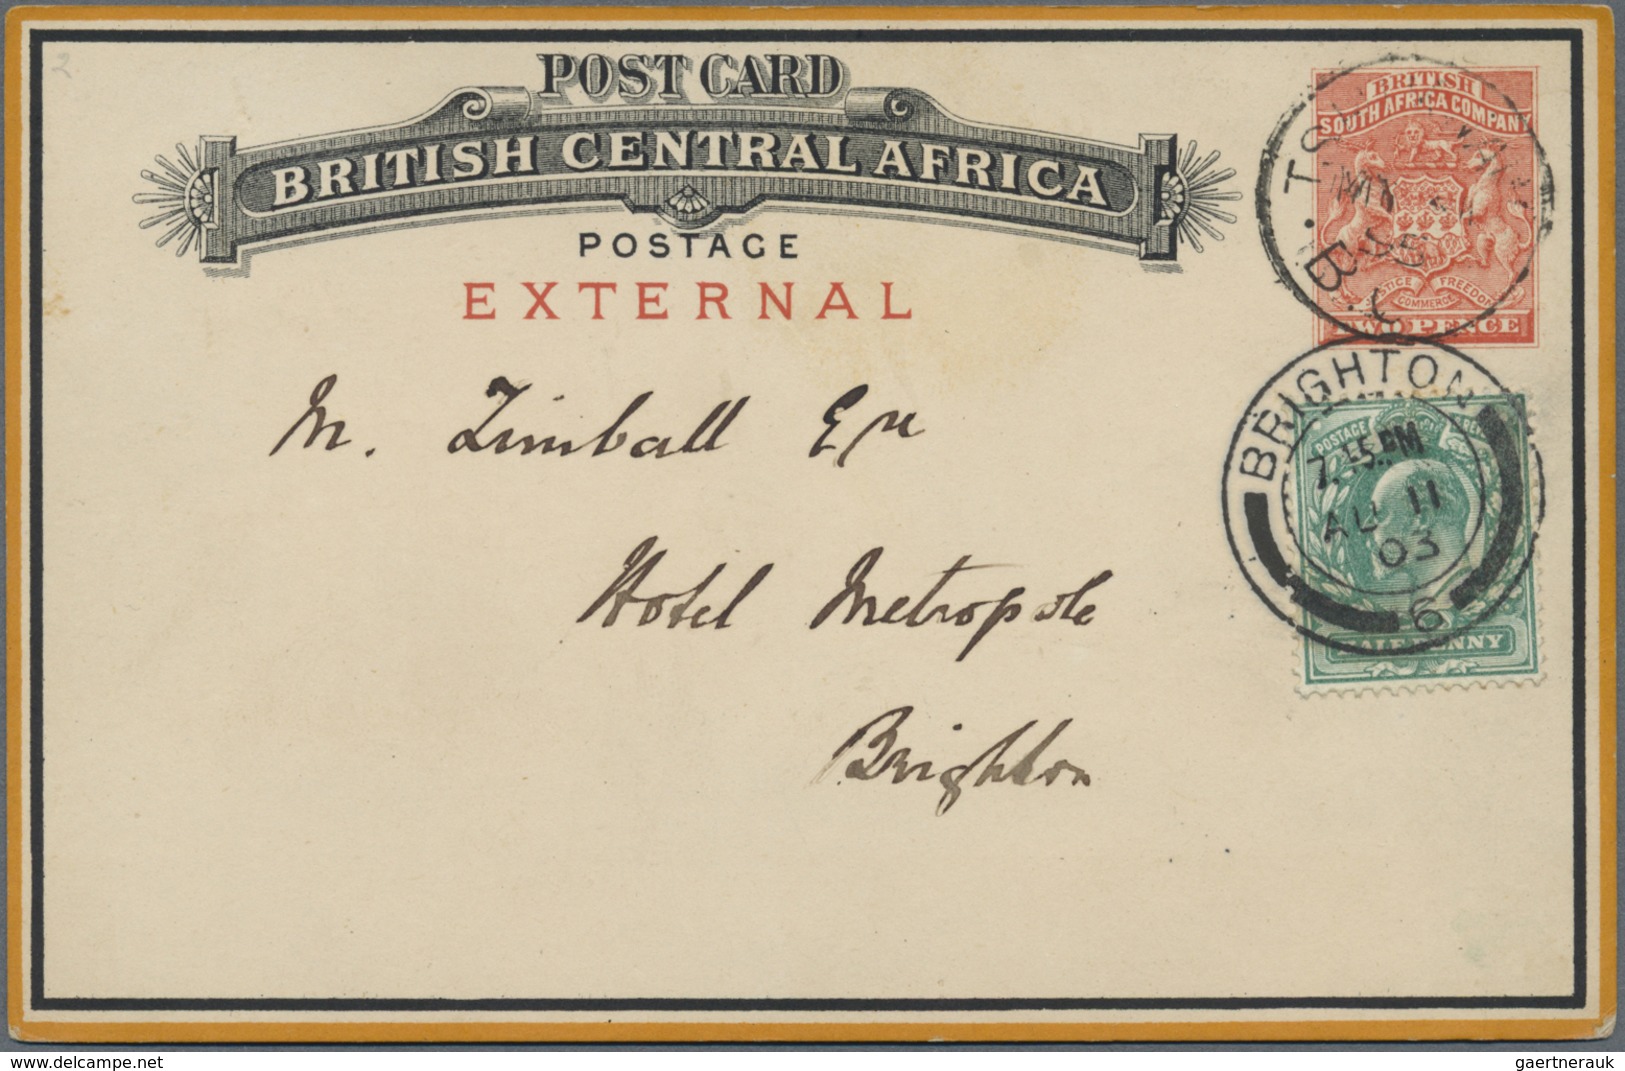 2
POST CARD
BRITISH CENTRAL AFRICA
POSTAGE
EXTERNAL
BRITISH
SOUTH AFRICA COMPANY
JUSTICE FREEDOM
COMMERCE
TWO PENCE
B.C.
BRIGHTON
7.15PM
AU 11
03
6
POSTAGE
HALFPENNY
M. Zimball Esq
Hotel Metropole
Brighton
gaertnerauk